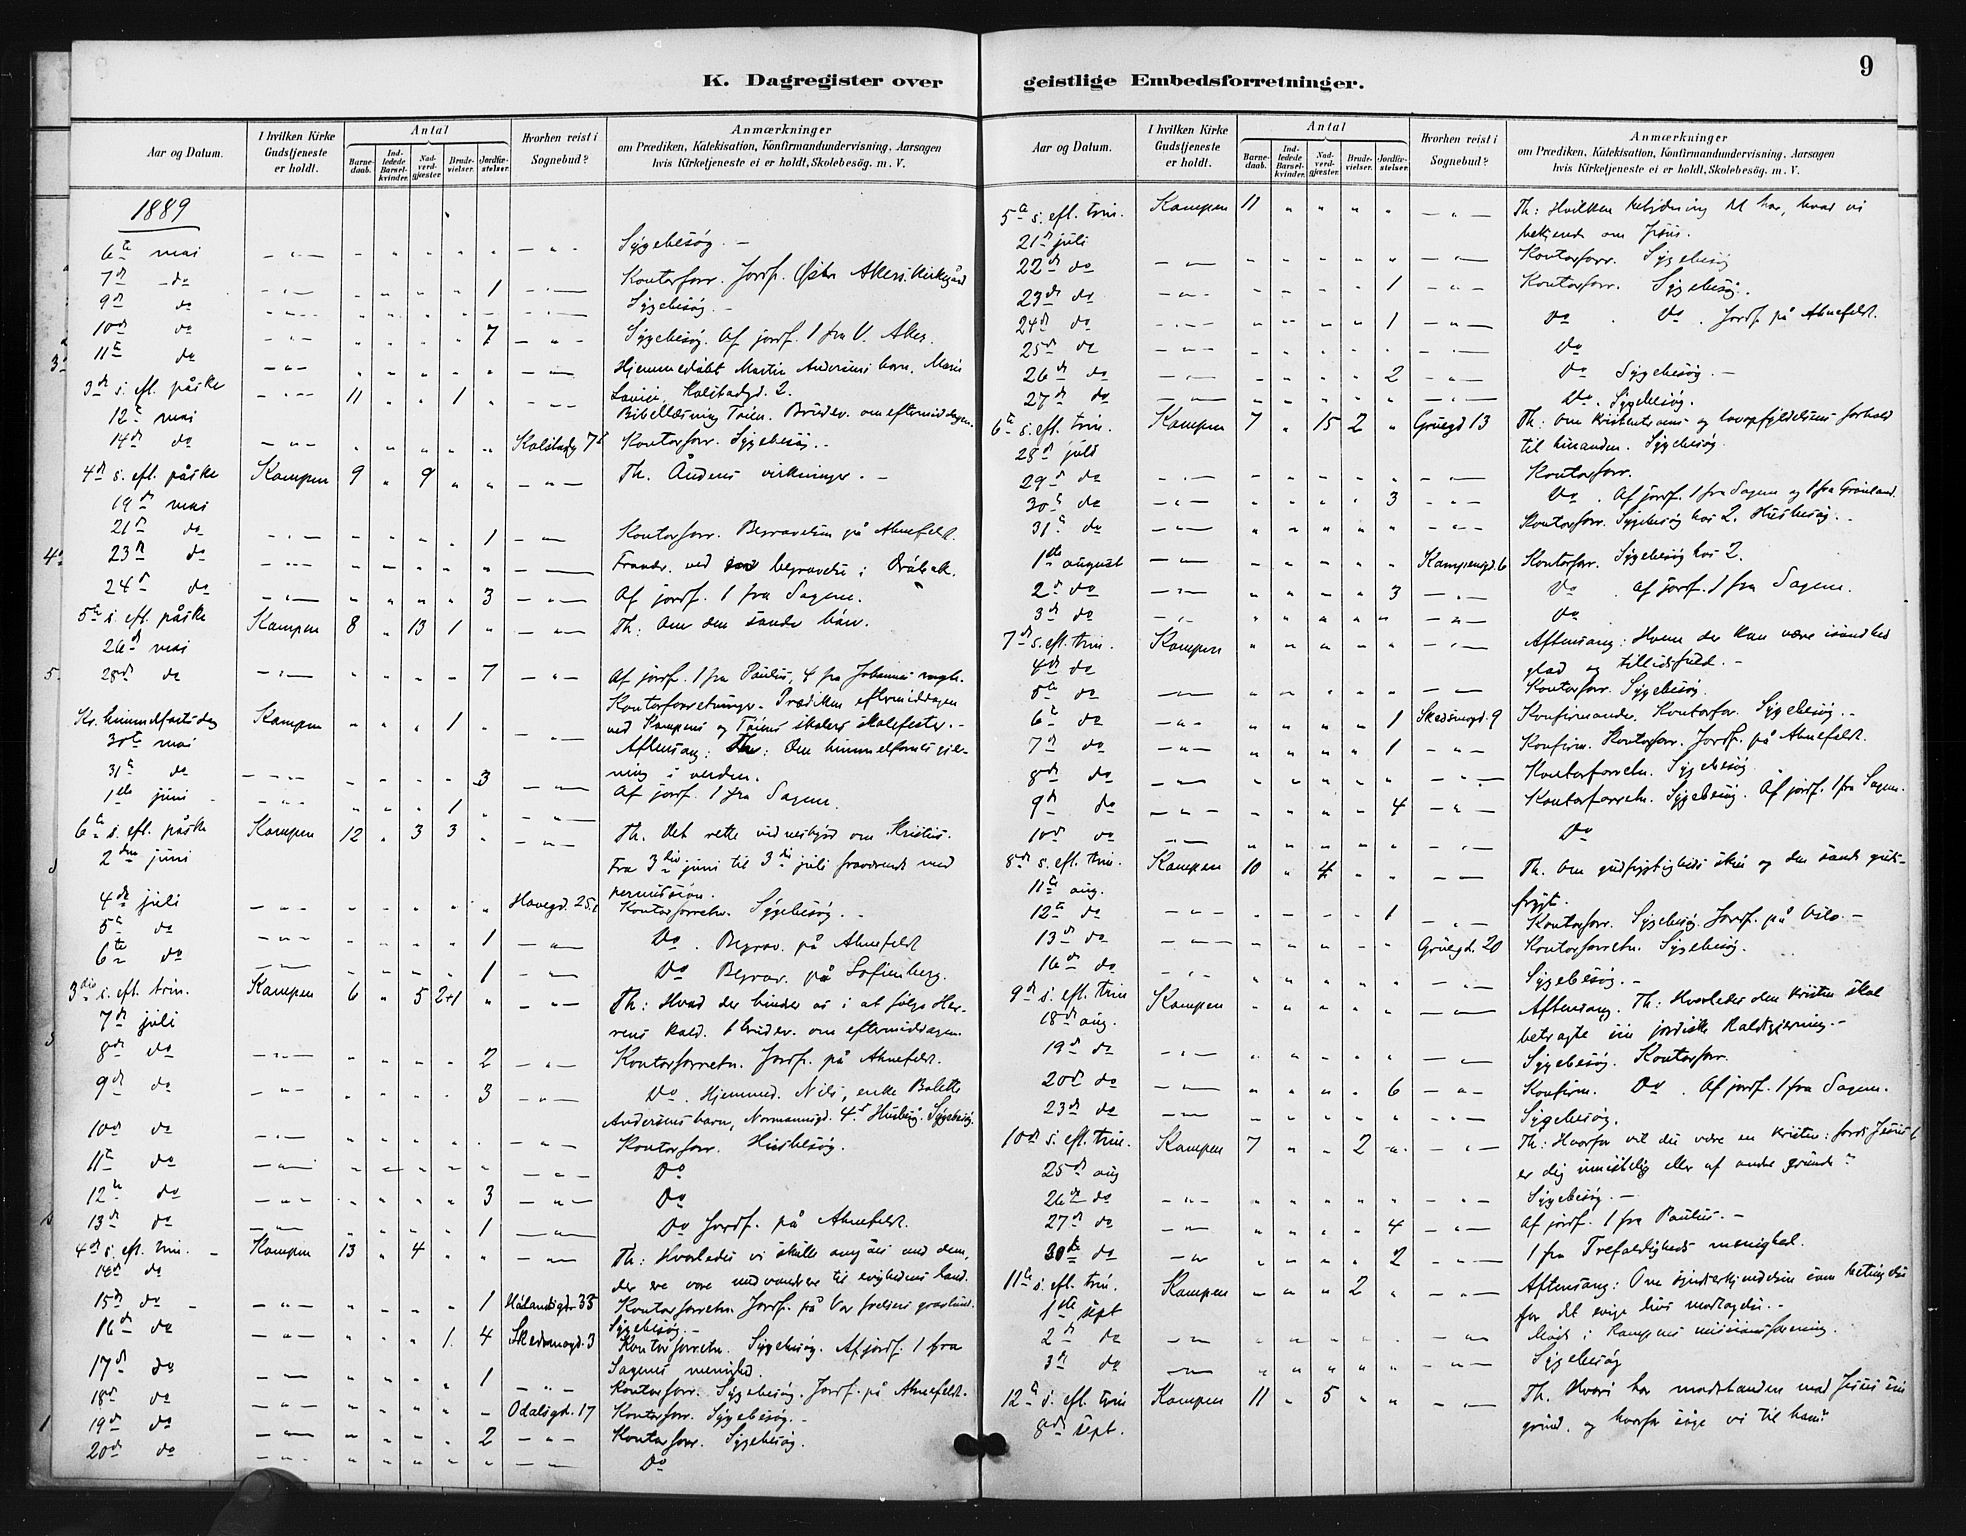 K. Dagregister over
geistlige Embedsforretninger.
9
Aar og Datum.
I hvilken Kirke Gudstjeneste er holdt.
Antal
Barne-daab.
Ind-ledede Barsel-kvinder.
Nad-verd-gjæster.
Brude-vielser.
Jordfæ-stelser.
Hvorhen reist i Sognebud?
Anmærkninger
om Prædiken, Katekisation, Konfirmandundervisning, Aarsagen
hvis Kirketjeneste ei er holdt, Skolebesög. m. V.
1889
6te mai Sygebesøg. -
7de do 1 Kontorforr. Jordf. Østre Akers kirkegård
9de do Sygebesøg. -
10de do 7 Sygebesøg. Af jordf. 1 fra V. Aker.
11te do Hjemmedøbt Martin Andersens barn, Marie
3de s. eft. påske 11 1 Kolstadgd. 2.
12te mai Bibellæsning Tøien. Brudev. om eftermiddagen.
14de do Kolstadg 7 Kontorforr. Sygebesøg. -
4de s. eft. påske Kampen 9 9 Th. Åndens virkninger. -
19de mai
21de do 1 Kontorforr. Begravelsen på Ahnefeldt.
23de do Fravær. ved begravelse i Drøbak.
24de do 3 Af jordf. 1 fra Sagene.
5te s. eft. påske Kampen 8 13 1 Th: Om den sande bøn.
26de mai
28de do 7 Af jordf. 1 fra Paulus, 4 fra Johannes mgh.
Kontorforretninger. Prædiken eftermiddagen
Kr. himmelfartsdag Kampen 1 ved Kampens og Tøiens skolers skolefester. -
30te mai Aftensang: Th: Den himmelfarnes gjer-
31te do 3 ning i verden.
1ste juni 1 Af jordf. 1 fra Sagene.
6te s. eft. påske Kampen 12 3 3 Th. Det rette vidnesbyrd om Kristus.
2den juni Fra 3die juni til 3die juli fraværende med
permission.
4de juli Havegd. 25 Kontorforretn. Sygebesøg. -
5te do 1 Do. Begrav. på Ahnefeldt
6te do 1 Do Begrav. på Sofienberg.
3die s. eft. trin. Kampen 6 5 2+1 Th: Hvad der hinder os i at følge Her-
7de juli rens kald. 1 brudev. om eftermiddagen.
8de do 2 Kontorforretn. Jordf. på Ahnefeldt.
9de do 3 Do. Hjemmed. Nils, enke Bolette
Andersens barn, Normannsgd. 4. Husbesøg. Sygebesøg.
10de do Kontorforr. Husbesøg.
11te do Do
12te do 3 Do
13de do 1 Do Jordf. på Ahnefeldt.
4de s. eft. trin. Kampen 13 4 Th: Hvorledes vi skulle omgåes med dem,
14de do der ere vore medvandrere til evighedens land.
15de do 1 Hålandsgd. 35 Kontorforretn. Jordf. på Vor frelsers gravlund.
Sygebesøg. -
16de do 1. 4 Skedsmogd. 3 Kontorforretn. Sygebesøg. Af jordf. 1 fra
Sagenes menighed.
17de do 1 Kontorforr. Sygebesøg. Jordf. på Ahnefeldt.
18de do Odalsgd. 17 Kontorforr. Sygebesøg. -
19de do 2 Kontorforr. Sygebesøg.
20de do Do
Aar og Datum.
I hvilken Kirke Gudstjeneste er holdt.
Antal
Barne-daab.
Ind-ledede Barsel-kvinder.
Nad-verd-gjæster.
Brude-vielser.
Jordfæ-stelser.
Hvorhen reist i Sognebud?
Anmærkninger
om Prædiken, Katekisation, Konfirmandundervisning, Aarsagen
hvis Kirketjeneste ei er holdt, Skolebesög. m. V.
5te s. eft. trin. Kampen 11 Th: Hvilken betydning det har, hvad vi
21de juli bekjende om Jesus.
22de do Kontorforr. Sygebesøg
23de do 1 Kontorforr. Sygebesøg.
24de do 1 Do. Do. Jordf. på Ahnefeldt.
25de do Do
26de do 2 Do Sygebesøg. -
27de do Do. Sygebesøg.
6te s. eft. trin. Kampen 7 15 2 Gruegd 13 Th: Om kristentroens og lovopfyldelsens forhold
28de juli til hinanden. Sygebesøg
29de do Kontorforr.
30te do 3 Do. Af jordf. 1 fra Sagene og 1 fra Grønland.
31te do Kontorforr. Sygebesøg hos 2. Husbesøg. -
1ste august Kampensgd. 6 Kontorforr. Sygebesøg hos 2.
2de do 3 Do. Af jordf. 1 fra Sagene.
3de do Do
7de s. eft. trin. Kampen Aftensang: Hvem der kan være isandhed
4de do glad og tillidsfuld. -
5te do Kontorforr. Sygebesøg.
6te do 1 Skedsmogd. 9 Konfirmander. Kontorforr. Sygebesøg. -
7de do 1 Konfirm. Kontorforr. Jordf. på Ahnefeldt.
8de do Kontorforretn. Sygebesøg
9de do 4 Kontorforretn. Sygebesøg. Af jordf. 1 fra Sagene.
10de do Do
8de s. eft. trin. Kampen 10 4 Th. Om gudfrygtigheds skin og den sande guds-
11te aug. frygt.
12te do 1 Kontorforr. Sygebesøg. Jordf. på Oslo. -
13de do Gruegd. 20 Kontorforretn. Sygebesøg.
16de do Sygebesøg. -
9de s. eft. trin Kampen Aftensang. Th: Hvorledes den kristen skal
18de aug. betragte sin jordiske kaldsgjerning. -
19de do Sygebesøg. Kontorforr.
20de do 6 Konfirm. Do. Af jordf. 1 fra Sagene.
23de do Sygebesøg.
10de s. eft. trin. Kampen 7 2 Th: Hvorfor vil du være en kristen: fordi Jesus
25de aug er dig umistelig eller af andre grunde?
26de do Sygebesøg. -
27de do 4 Af jordf. 1 fra Paulus. -
30te do 2 1 fra Trefoldigheds menighed.
11te s. eft. trin. Kampen 2 Aftensang: Om synderkjendelsen som betingelse
1ste sept for det evige livs modtagelse. -
2de do Møde i Kampens missionsforening.
3de do Sygebesøg
12te s. eft. trin Kampen 11 5 Th. Hvori har modstanden mod Jesus sin
8de sept. grund, og hvorfor søge vi til ham?